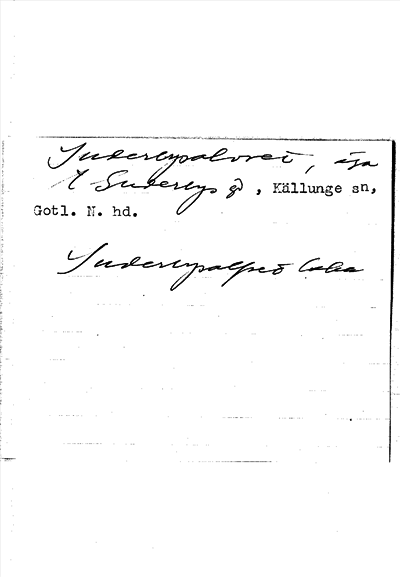 Suderbysalvret, äga
t Suderbys gd, Källunge sn,
Gotl. N. hd.
Suderbysalfret